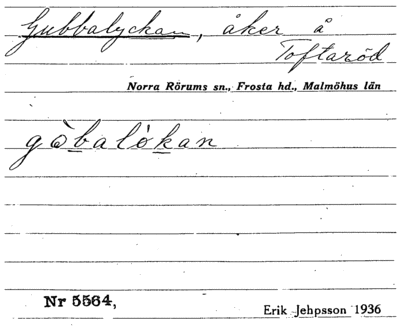 Gubbalyckan, åker å
Toftaröd
Norra Rörums sn., Frosta hd., Malmöhus län
gòbalòkan
Nr 5564,
Erik Jehpsson 1936